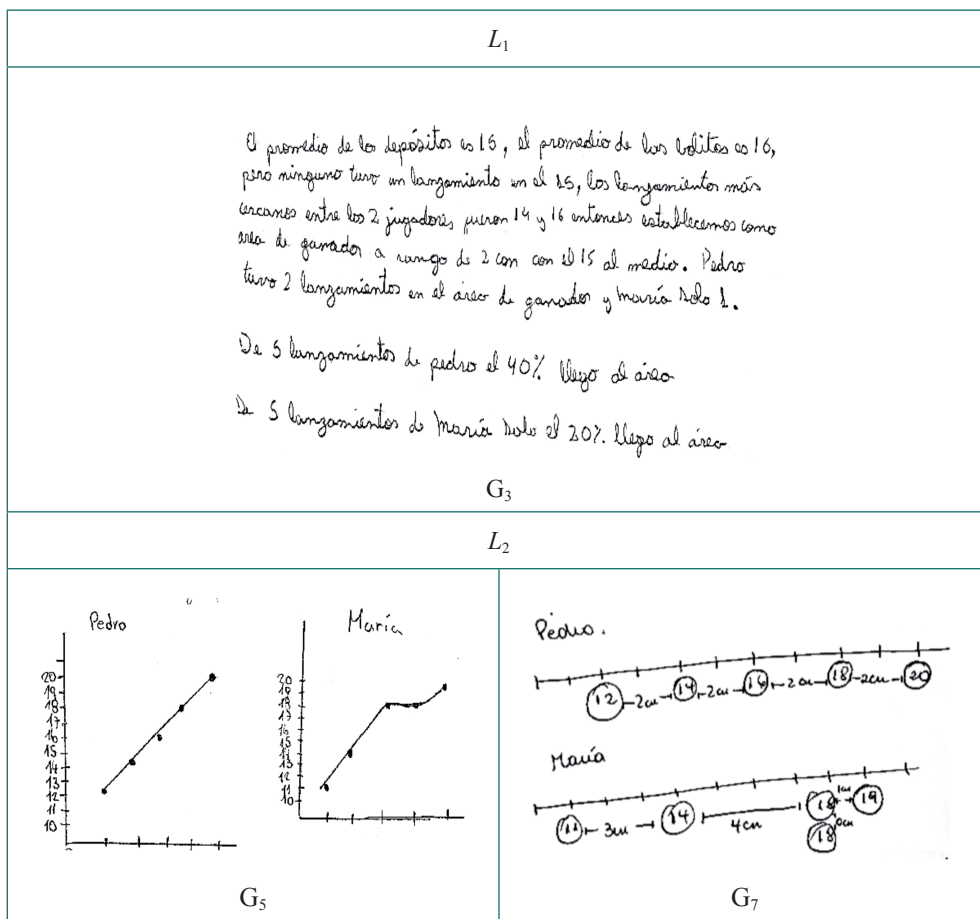 L1
El promedio de los depósitos es 15, el promedio de las bolitas es 16,
pero ninguno tuvo un lanzamiento en el 15, los lanzamientos más
cercanos entre los 2 jugadores fueron 14 y 16 entonces establecemos como
area de ganador a rango de 2 cm con el 15 al medio. Pedro
tuvo 2 lanzamientos en el área de ganador y María solo 1.
De 5 lanzamientos de pedro el 40% llego al área
De 5 lanzamientos de María solo el 20% llego al área
G3
L2
Pedro
20
19
18
17
16
15
14
13
12
11
10
María
20
19
18
17
16
15
14
13
12
11
10
G5
Pedro.
12 2cm 14 2cm 16 2cm 18 2cm 20
María
11 3cm 14 4cm 18 1cm 19
18 0cm
G7